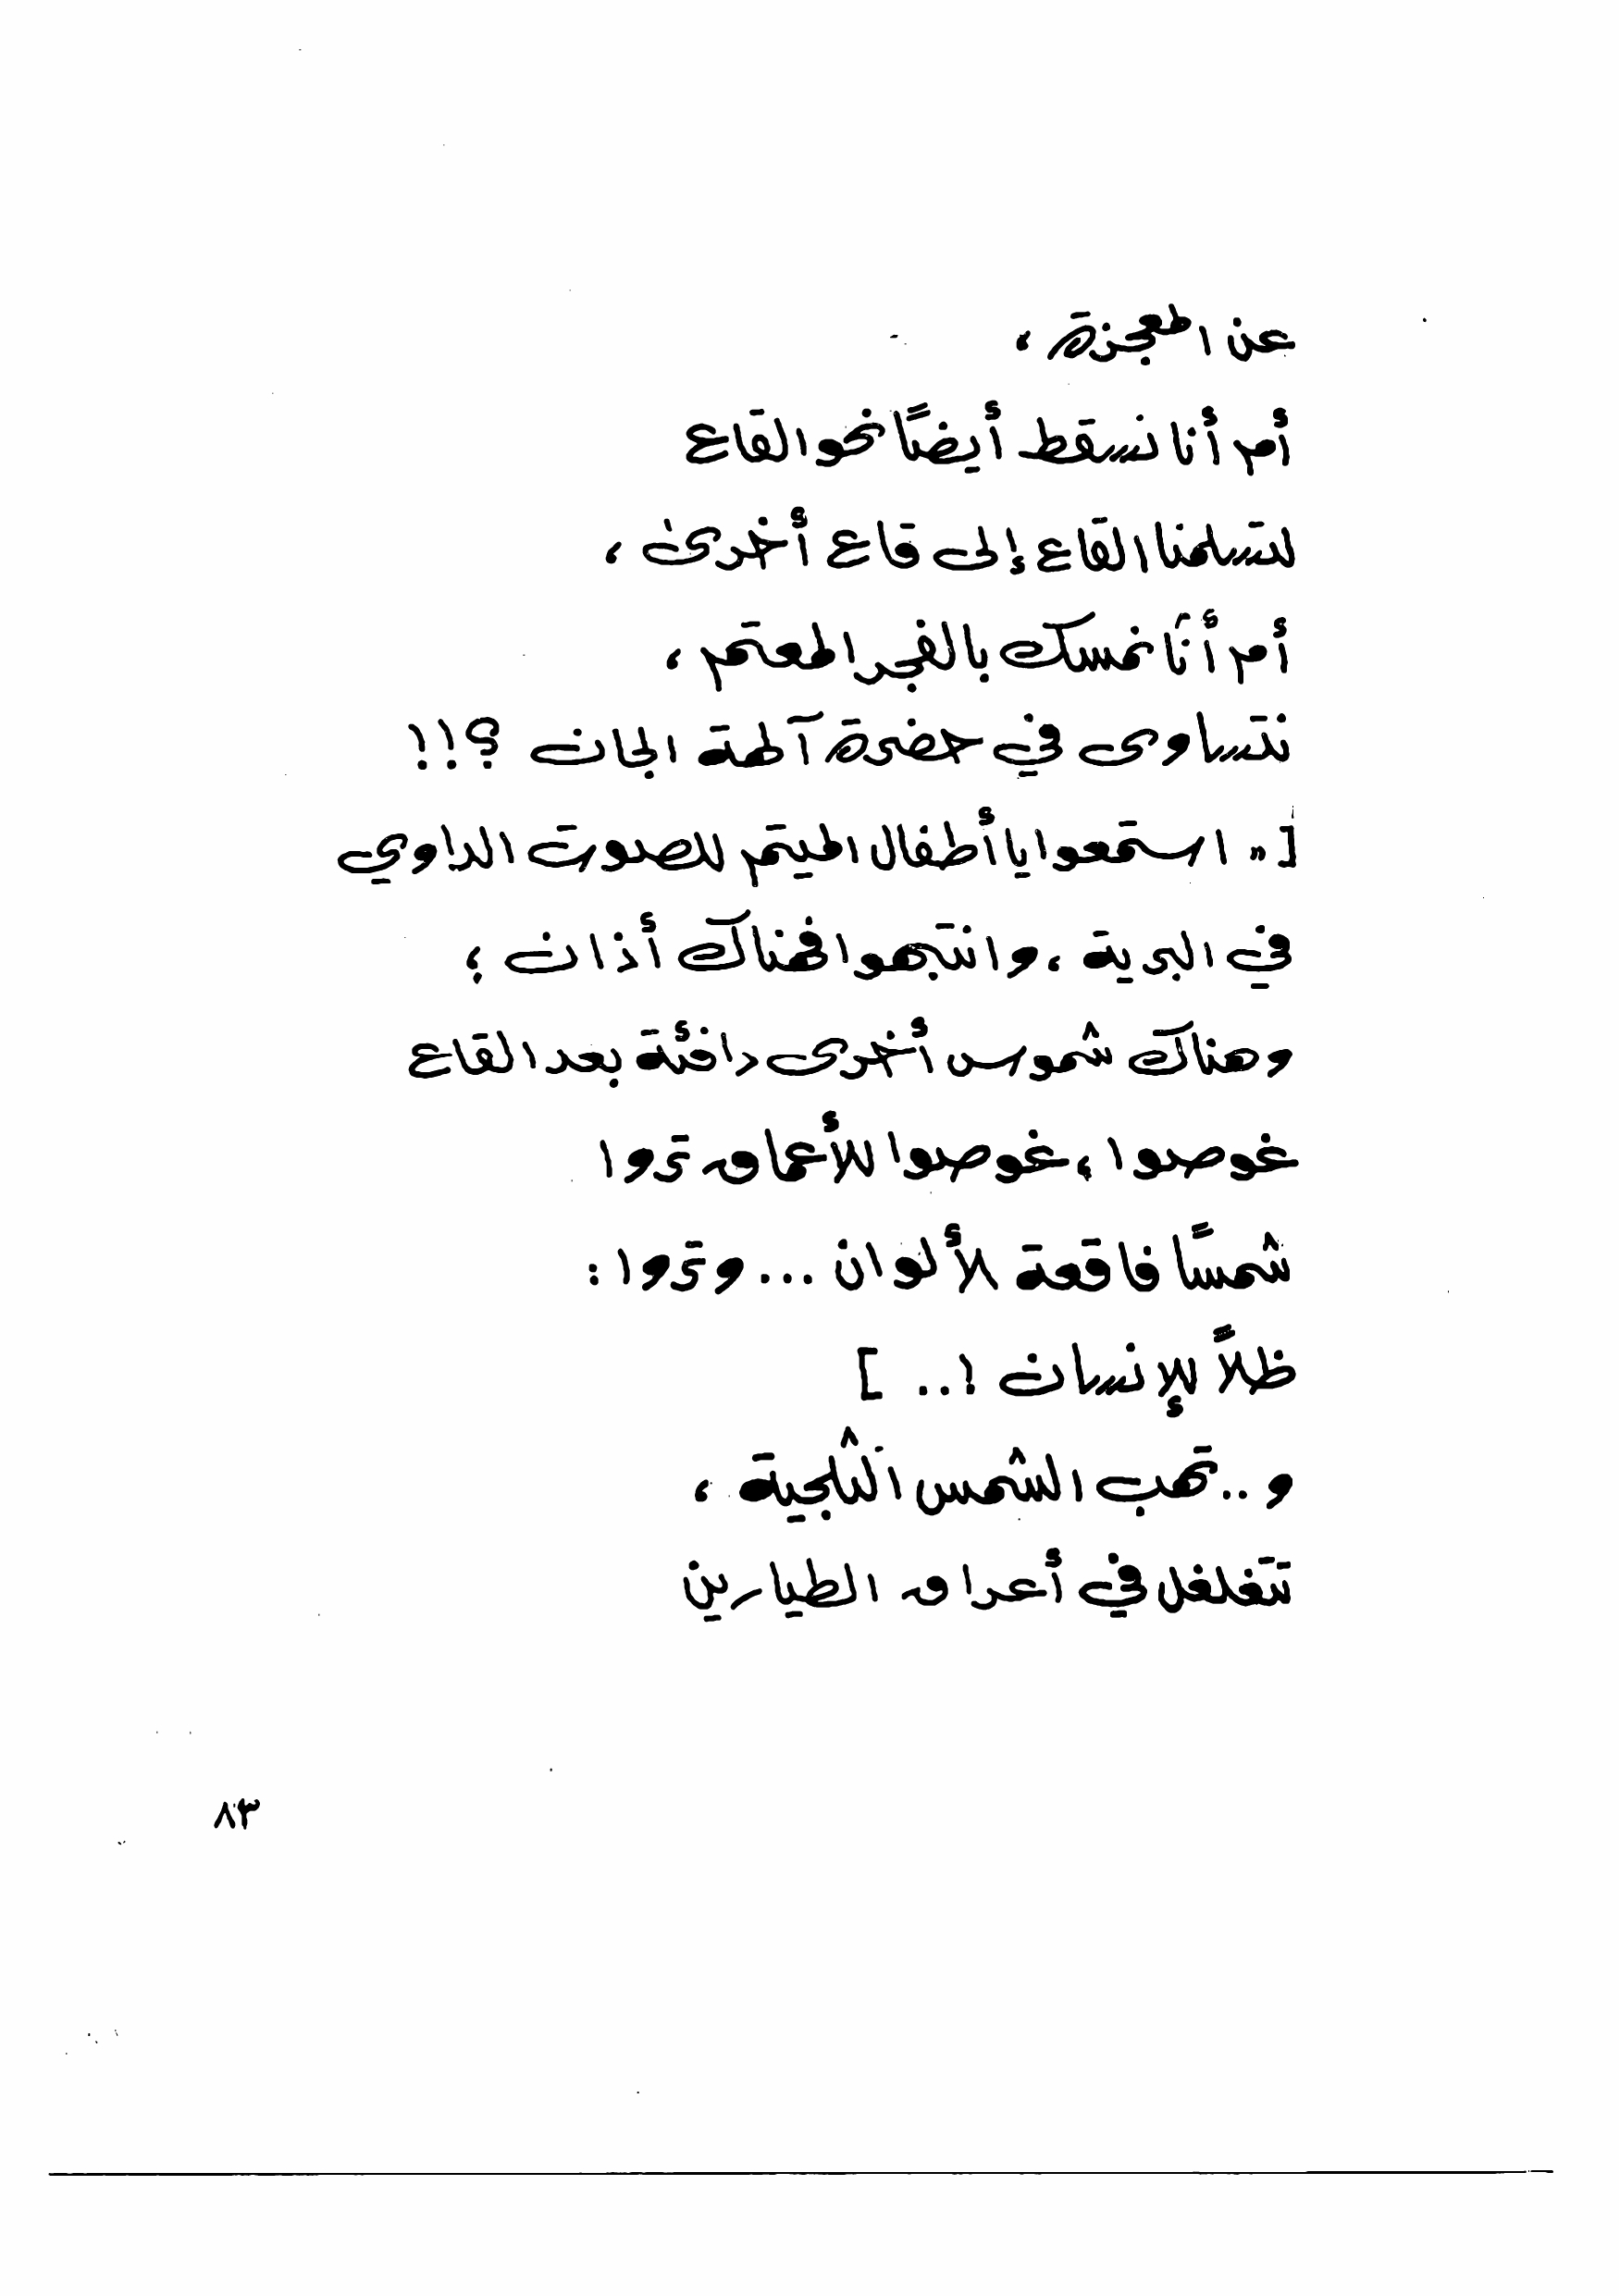 عن المعجزة ،
أم أنا نسقط أيضًا نحو القاع
لتسلمنا القاع إلى قاع أخرىٰ ،
أم أنَا نمسك بالفجر المعتم ،
نتساوى في حضرة آلهة الجان ؟!!
[ " استمعوا يا أطفال الميتم للصوت الداوي
في البرية ، وانتبهوا فهناك أذان ؛
وهناك شموس أخرى دافئة بعد القاع
غوصوا ؛ غوصوا للأعماق تروا
شمسًا فاقعة لألوان ... وتروا :
ظلاً للإنسان !.. ]
و .. تهب الشمس الثلجية ،
تتغلغل في أعراق الطيارين
٨٣